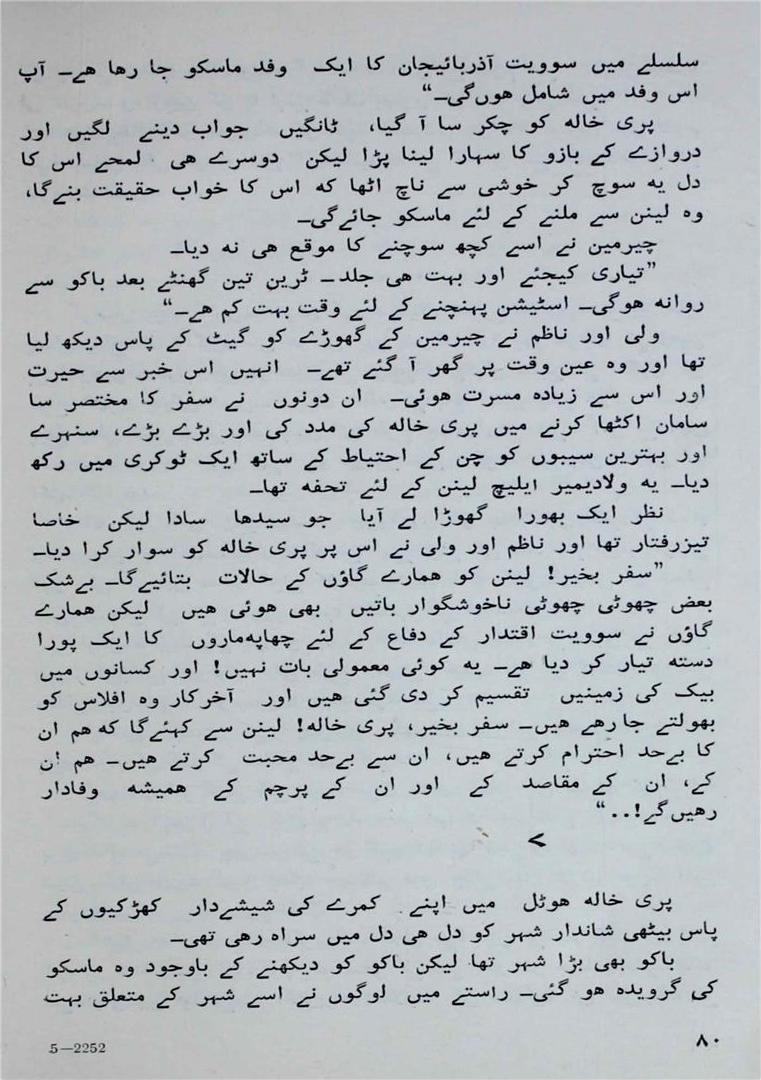 سلسلے میں سوویت آذربائیجان کا ایک وفد ماسکو جا رها هے۔ آپ
اس وفد میں شامل هوں‌گی۔“
پری خاله کو چکر سا آ گیا، ٹانگیں جواب دینے لگیں اور
دروازے کے بازو کا سہارا لینا پڑا لیکن دوسرے هی لمحے اس کا
دل یه سوچ کر خوشی سے ناچ اٹھا که اس کا خواب حقیقت بنے‌گا،
وه لینن سے ملنے کے لئے ماسکو جائے‌گی۔
چیرمین نے اسے کچھ سوچنے کا موقع هی نه دیا۔
”تیاری کیجئے اور بہت هی جلد۔ ٹرین تین گھنٹے بعد باکو سے
روانه هوگی۔ اسٹیشن پہنچنے کے لئے وقت بہت کم هے۔“
ولی اور ناظم نے چیرمین کے گھوڑے کو گیٹ کے پاس دیکھ لیا
تھا اور وه عین وقت پر گھر آ گئے تھے۔ انہیں اس خبر سے حیرت
اور اس سے زیاده مسرت هوئی۔ ان دونوں نے سفر کا مختصر سا
سامان اکٹھا کرنے میں پری خاله کی مدد کی اور بڑے بڑے، سنہرے
اور بہترین سیبوں کو چن کے احتیاط کے ساتھ ایک ٹوکری میں رکھ
دیا۔ یه ولادیمیر ایلیچ لینن کے لئے تحفه تھا۔
نظر ایک بھورا گھوڑا لے آیا جو سیدها سادا لیکن خاصا
تیزرفتار تھا اور ناظم اور ولی نے اس پر پری خاله کو سوار کرا دیا۔
”سفر بخیر! لینن کو همارے گاؤں کے حالات بتائیے‌گا۔ بے‌شک
بعض چھوٹی چھوٹی ناخوشگوار باتیں بھی هوئی هیں لیکن همارے
گاؤں نے سوویت اقتدار کے دفاع کے لئے چھاپه‌ماروں کا ایک پورا
دسته تیار کر دیا هے۔ یه کوئی معمولی بات نہیں! اور کسانوں میں
بیک کی زمینیں تقسیم کر دی گئی هیں اور آخرکار وه افلاس کو
بھولتے جا رهے هیں۔ سفر بخیر، پری خاله! لینن سے کہئے‌گا که هم ان
کا بے‌حد احترام کرتے هیں، ان سے بے‌حد محبت کرتے هیں۔ هم ان
کے، ان کے مقاصد کے اور ان کے پرچم کے همیشه وفادار
رهیں‌گے!..“
>
پری خاله هوٹل میں اپنے کمرے کی شیشے‌دار کھڑکیوں کے
پاس بیٹھی شاندار شہر کو دل هی دل میں سراه رهی تھی۔
باکو بھی بڑا شہر تھا لیکن باکو کو دیکھنے کے باوجود وه ماسکو
کی گرویده هو گئی۔ راستے میں لوگوں نے اسے شہر کے متعلق بہت
5—2252
۸۰